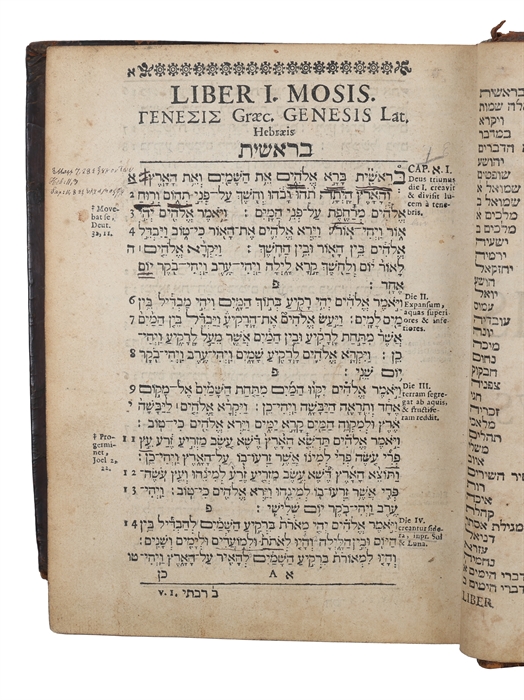 א
LIBER I. MOSIS.
ΓΕΝΕΣΙΣ Græc. GENESIS Lat.
Hebræis
בראשית
CAP. א. I.
Deus triunus
die I. creavit
& divisit lu-
cem à tene-
bris.
† Move-
bat se,
Deut.
32, 11.
א בְּרֵאשִׁית בָּרָא אֱלֹהִים אֵת הַשָּׁמַיִם וְאֵת הָאָרֶץ׃
2 וְהָאָרֶץ הָיְתָה תֹהוּ וָבֹהוּ וְחֹשֶׁךְ עַל־פְּנֵי תְהוֹם וְרוּחַ
3 אֱלֹהִים מְרַחֶפֶת עַל־פְּנֵי הַמָּיִם׃ וַיֹּאמֶר אֱלֹהִים יְהִי
4 אוֹר וַיְהִי־אוֹר׃ וַיַּרְא אֱלֹהִים אֶת־הָאוֹר כִּי־טוֹב וַיַּבְדֵּל
ה אֱלֹהִים בֵּין הָאוֹר וּבֵין הַחֹשֶׁךְ׃ וַיִּקְרָא אֱלֹהִים
לָאוֹר יוֹם וְלַחֹשֶׁךְ קָרָא לָיְלָה וַיְהִי־עֶרֶב וַיְהִי־בֹקֶר יוֹם
אֶחָד׃ פ
Die II.
Expansum,
aquas superi
ores & infe-
riores.
6 וַיֹּאמֶר אֱלֹהִים יְהִי רָקִיעַ בְּתוֹךְ הַמָּיִם וִיהִי מַבְדִּיל בֵּין
7 מַיִם לָמָיִם׃ וַיַּעַשׂ אֱלֹהִים אֶת־הָרָקִיעַ וַיַּבְדֵּל בֵּין הַמַּיִם
אֲשֶׁר מִתַּחַת לָרָקִיעַ וּבֵין הַמַּיִם אֲשֶׁר מֵעַל לָרָקִיעַ וַיְהִי־
8 כֵן׃ וַיִּקְרָא אֱלֹהִים לָרָקִיעַ שָׁמָיִם וַיְהִי־עֶרֶב וַיְהִי־בֹקֶר
יוֹם שֵׁנִי׃ פ
Die III.
terram segre-
gat ab aquis,
& fructife-
ram reddit.
9 וַיֹּאמֶר אֱלֹהִים יִקָּווּ הַמַּיִם מִתַּחַת הַשָּׁמַיִם אֶל־מָקוֹם
אֶחָד וְתֵרָאֶה הַיַּבָּשָׁה וַיְהִי־כֵן׃ וַיִּקְרָא אֱלֹהִים לַיַּבָּשָׁה י
אֶרֶץ וּלְמִקְוֵה הַמַּיִם קָרָא יַמִּים וַיַּרְא אֱלֹהִים כִּי־טוֹב׃
† Pro-
germi-
net,
Joel 2,
22.
11 וַיֹּאמֶר אֱלֹהִים תַּדְשֵׁא הָאָרֶץ דֶּשֶׁא עֵשֶׂב מַזְרִיעַ זֶרַע עֵץ
פְּרִי עֹשֶׂה פְּרִי לְמִינוֹ אֲשֶׁר זַרְעוֹ־בוֹ עַל־הָאָרֶץ וַיְהִי־כֵן׃
12 וַתּוֹצֵא הָאָרֶץ דֶּשֶׁא עֵשֶׂב מַזְרִיעַ זֶרַע לְמִינֵהוּ וְעֵץ עֹשֶׂה
13 פְּרִי אֲשֶׁר זַרְעוֹ־בוֹ לְמִינֵהוּ וַיַּרְא אֱלֹהִים כִּי־טוֹב׃ וַיְהִי־
עֶרֶב וַיְהִי־בֹקֶר יוֹם שְׁלִישִׁי׃ פ
Die IV.
creantur side-
ra, inpr. Sol
& Luna.
14 וַיֹּאמֶר אֱלֹהִים יְהִי מְאֹרֹת בִּרְקִיעַ הַשָּׁמַיִם לְהַבְדִּיל בֵּין
הַיּוֹם וּבֵין הַלָּיְלָה וְהָיוּ לְאֹתֹת וּלְמוֹעֲדִים וּלְיָמִים וְשָׁנִים׃
טו וְהָיוּ לִמְאוֹרֹת בִּרְקִיעַ הַשָּׁמַיִם לְהָאִיר עַל־הָאָרֶץ וַיְהִי־
א A כן
v. 1. ב רבתי
בראשית
שמות
ויקרא
במדבר
הדברים
יהושע
שופטים
שמואל
שמואל
מלכים
מלכים
ישעיה
ירמיה
יחזקאל
הושע
יואל
עמוס
עובדיה
יונה
מיכה
נחום
חבקוק
צפניה
חגי
זכריה
מלאכי
תהלים
משלי
איוב
שיר השירים
רות
איכה
קהלת
מגילת
דניאל
עזרא
נחמיה
דברי הימים
דברי הימים
LIBER